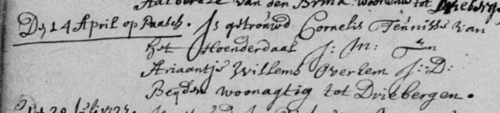 van den Brink woonend tot Drieberge
Dy 14 April op Paasch. Is getrouwd Cornelis Teunisse van
het Hoenderdaal J: M: En
Ariaantje Willems Overhem J: D:
Beyden woonagtig tot Driebergen.